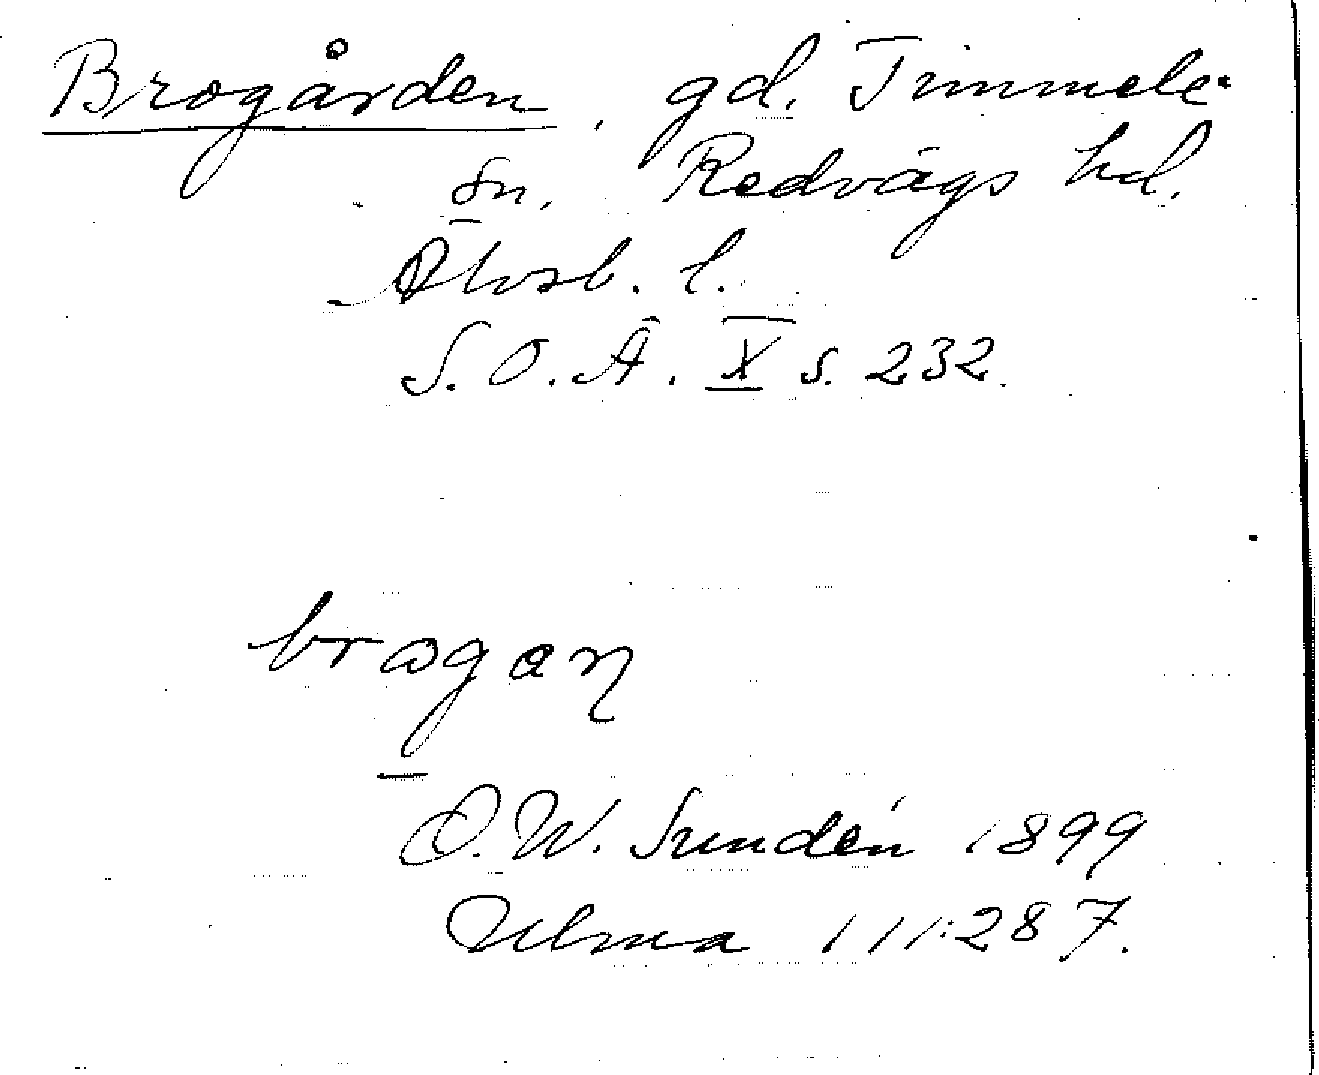 Brogården, gd. Timmele
sn. Redvägs hd.
Älvsb. l.
S. O. Ä. X s. 232.
brogan
D. W. Sundén 1899
Ulma 111:287.